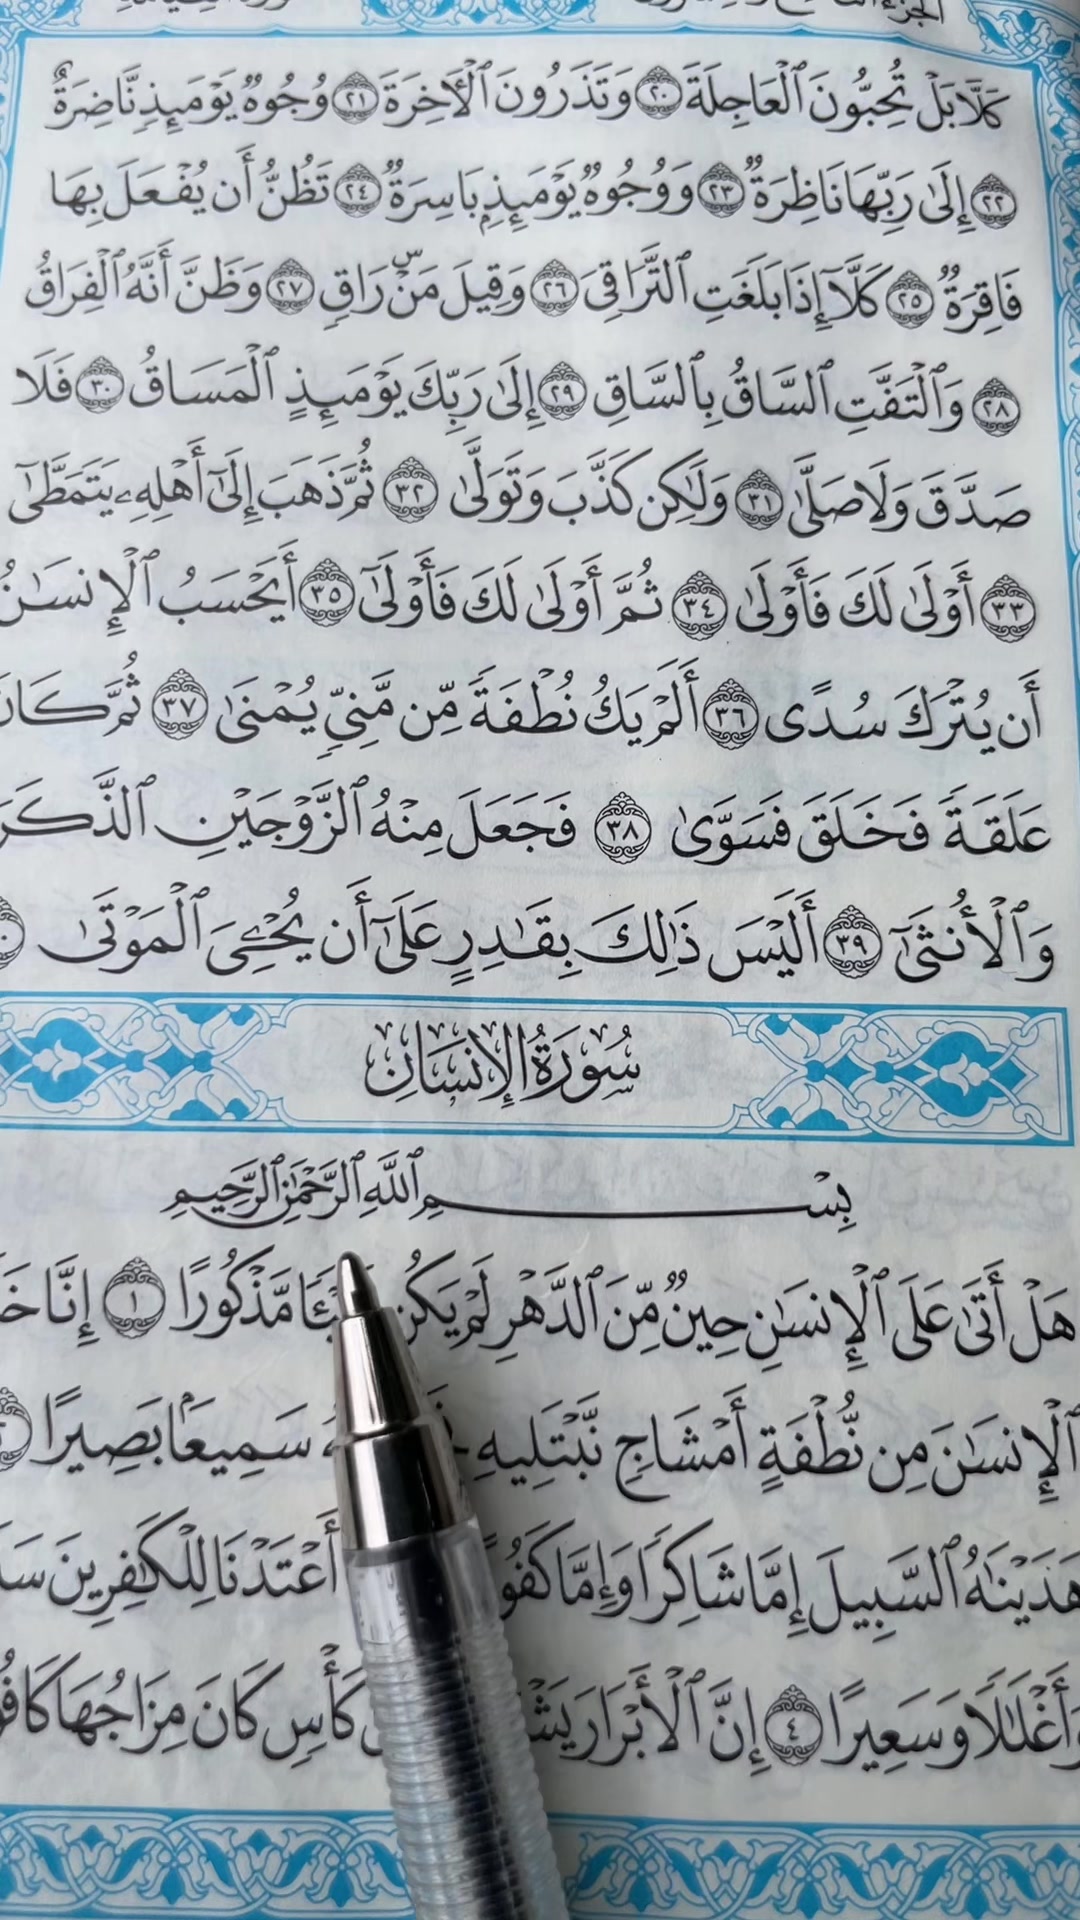 كَلَّا بَلْ تُحِبُّونَ ٱلْعَاجِلَةَ ٢٠ وَتَذَرُونَ ٱلْأٓخِرَةَ ٢١ وُجُوهٌ يَوْمَئِذٍ نَّاضِرَةٌ
٢٢ إِلَىٰ رَبِّهَا نَاظِرَةٌ ٢٣ وَوُجُوهٌ يَوْمَئِذٍۭ بَاسِرَةٌ ٢٤ تَظُنُّ أَن يُفْعَلَ بِهَا
فَاقِرَةٌ ٢٥ كَلَّآ إِذَا بَلَغَتِ ٱلتَّرَاقِىَ ٢٦ وَقِيلَ مَنْۜ رَاقٍ ٢٧ وَظَنَّ أَنَّهُ ٱلْفِرَاقُ
٢٨ وَٱلْتَفَّتِ ٱلسَّاقُ بِٱلسَّاقِ ٢٩ إِلَىٰ رَبِّكَ يَوْمَئِذٍ ٱلْمَسَاقُ ٣٠ فَلَا
صَدَّقَ وَلَا صَلَّىٰ ٣١ وَلَٰكِن كَذَّبَ وَتَوَلَّىٰ ٣٢ ثُمَّ ذَهَبَ إِلَىٰٓ أَهْلِهِۦ يَتَمَطَّىٰٓ
٣٣ أَوْلَىٰ لَكَ فَأَوْلَىٰ ٣٤ ثُمَّ أَوْلَىٰ لَكَ فَأَوْلَىٰٓ ٣٥ أَيَحْسَبُ ٱلْإِنسَٰنُ
أَن يُتْرَكَ سُدًى ٣٦ أَلَمْ يَكُ نُطْفَةً مِّن مَّنِىٍّ يُمْنَىٰ ٣٧ ثُمَّ كَانَ
عَلَقَةً فَخَلَقَ فَسَوَّىٰ ٣٨ فَجَعَلَ مِنْهُ ٱلزَّوْجَيْنِ ٱلذَّكَرَ
وَٱلْأُنثَىٰٓ ٣٩ أَلَيْسَ ذَٰلِكَ بِقَٰدِرٍ عَلَىٰٓ أَن يُحْـِۧىَ ٱلْمَوْتَىٰ
سُورَةُ الإِنسَانِ
بِسْمِ ٱللَّهِ ٱلرَّحْمَٰنِ ٱلرَّحِيمِ
هَلْ أَتَىٰ عَلَى ٱلْإِنسَٰنِ حِينٌ مِّنَ ٱلدَّهْرِ لَمْ يَكُن مَّذْكُورًا ١ إِنَّا
ٱلْإِنسَٰنَ مِن نُّطْفَةٍ أَمْشَاجٍ نَّبْتَلِيهِ سَمِيعًۢا بَصِيرًا
هَدَيْنَٰهُ ٱلسَّبِيلَ إِمَّا شَاكِرًا وَإِمَّا أَعْتَدْنَا لِلْكَٰفِرِينَ
وَأَغْلَٰلًا وَسَعِيرًا ٤ إِنَّ ٱلْأَبْرَارَ كَأْسٍ كَانَ مِزَاجُهَا